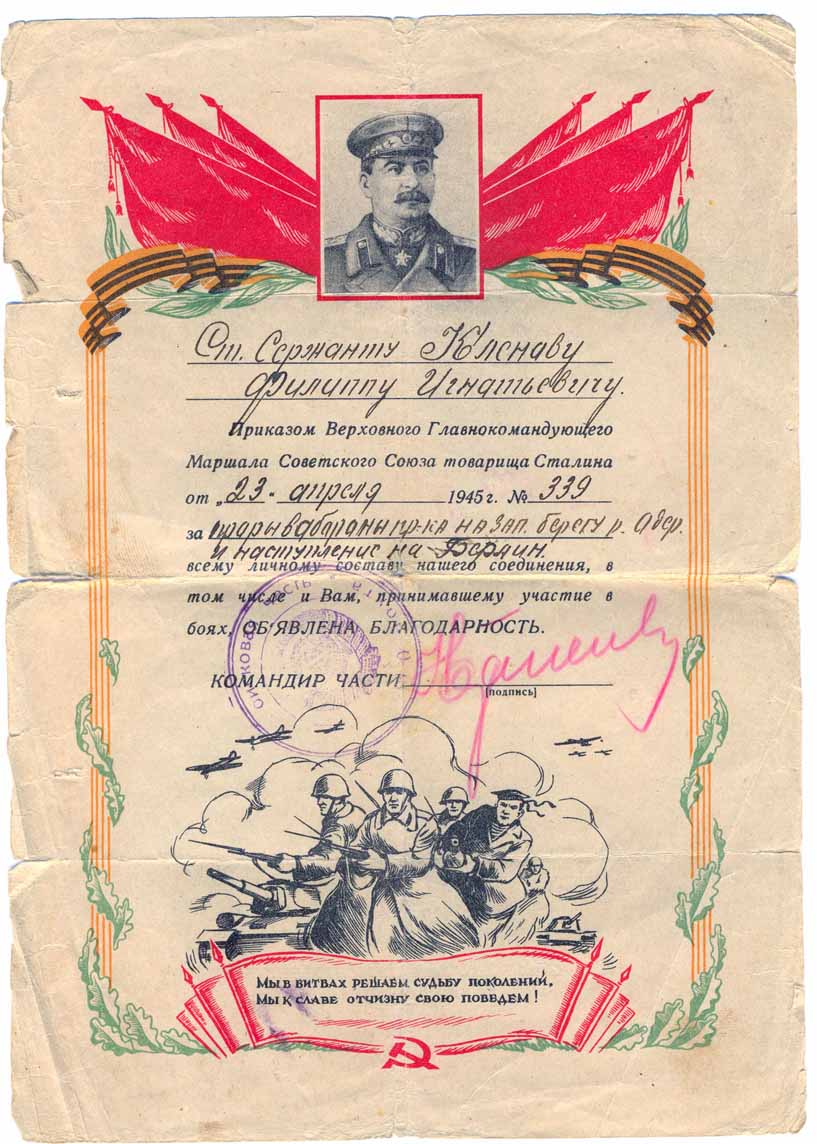 Ст. Сержанту Кленаву
Филиппу Игнатьевичу.
Приказом Верховного Главнокомандующего
Маршала Советского Союза товарища Сталина
от „23" апреля 1945 г. № 339
за прорыв обароны пр-ка на зап. берегу р. Одер.
и наступление на Берлин.
всему личному составу нашего соединения, в
том числе и Вам, принимавшему участие в
боях, ОБ'ЯВЛЕНА БЛАГОДАРНОСТЬ.
КОМАНДИР ЧАСТИ
[подпись]
МЫ В БИТВАХ РЕШАЕМ СУДЬБУ ПОКОЛЕНИЙ,
МЫ К СЛАВЕ ОТЧИЗНУ СВОЮ ПОВЕДЕМ!